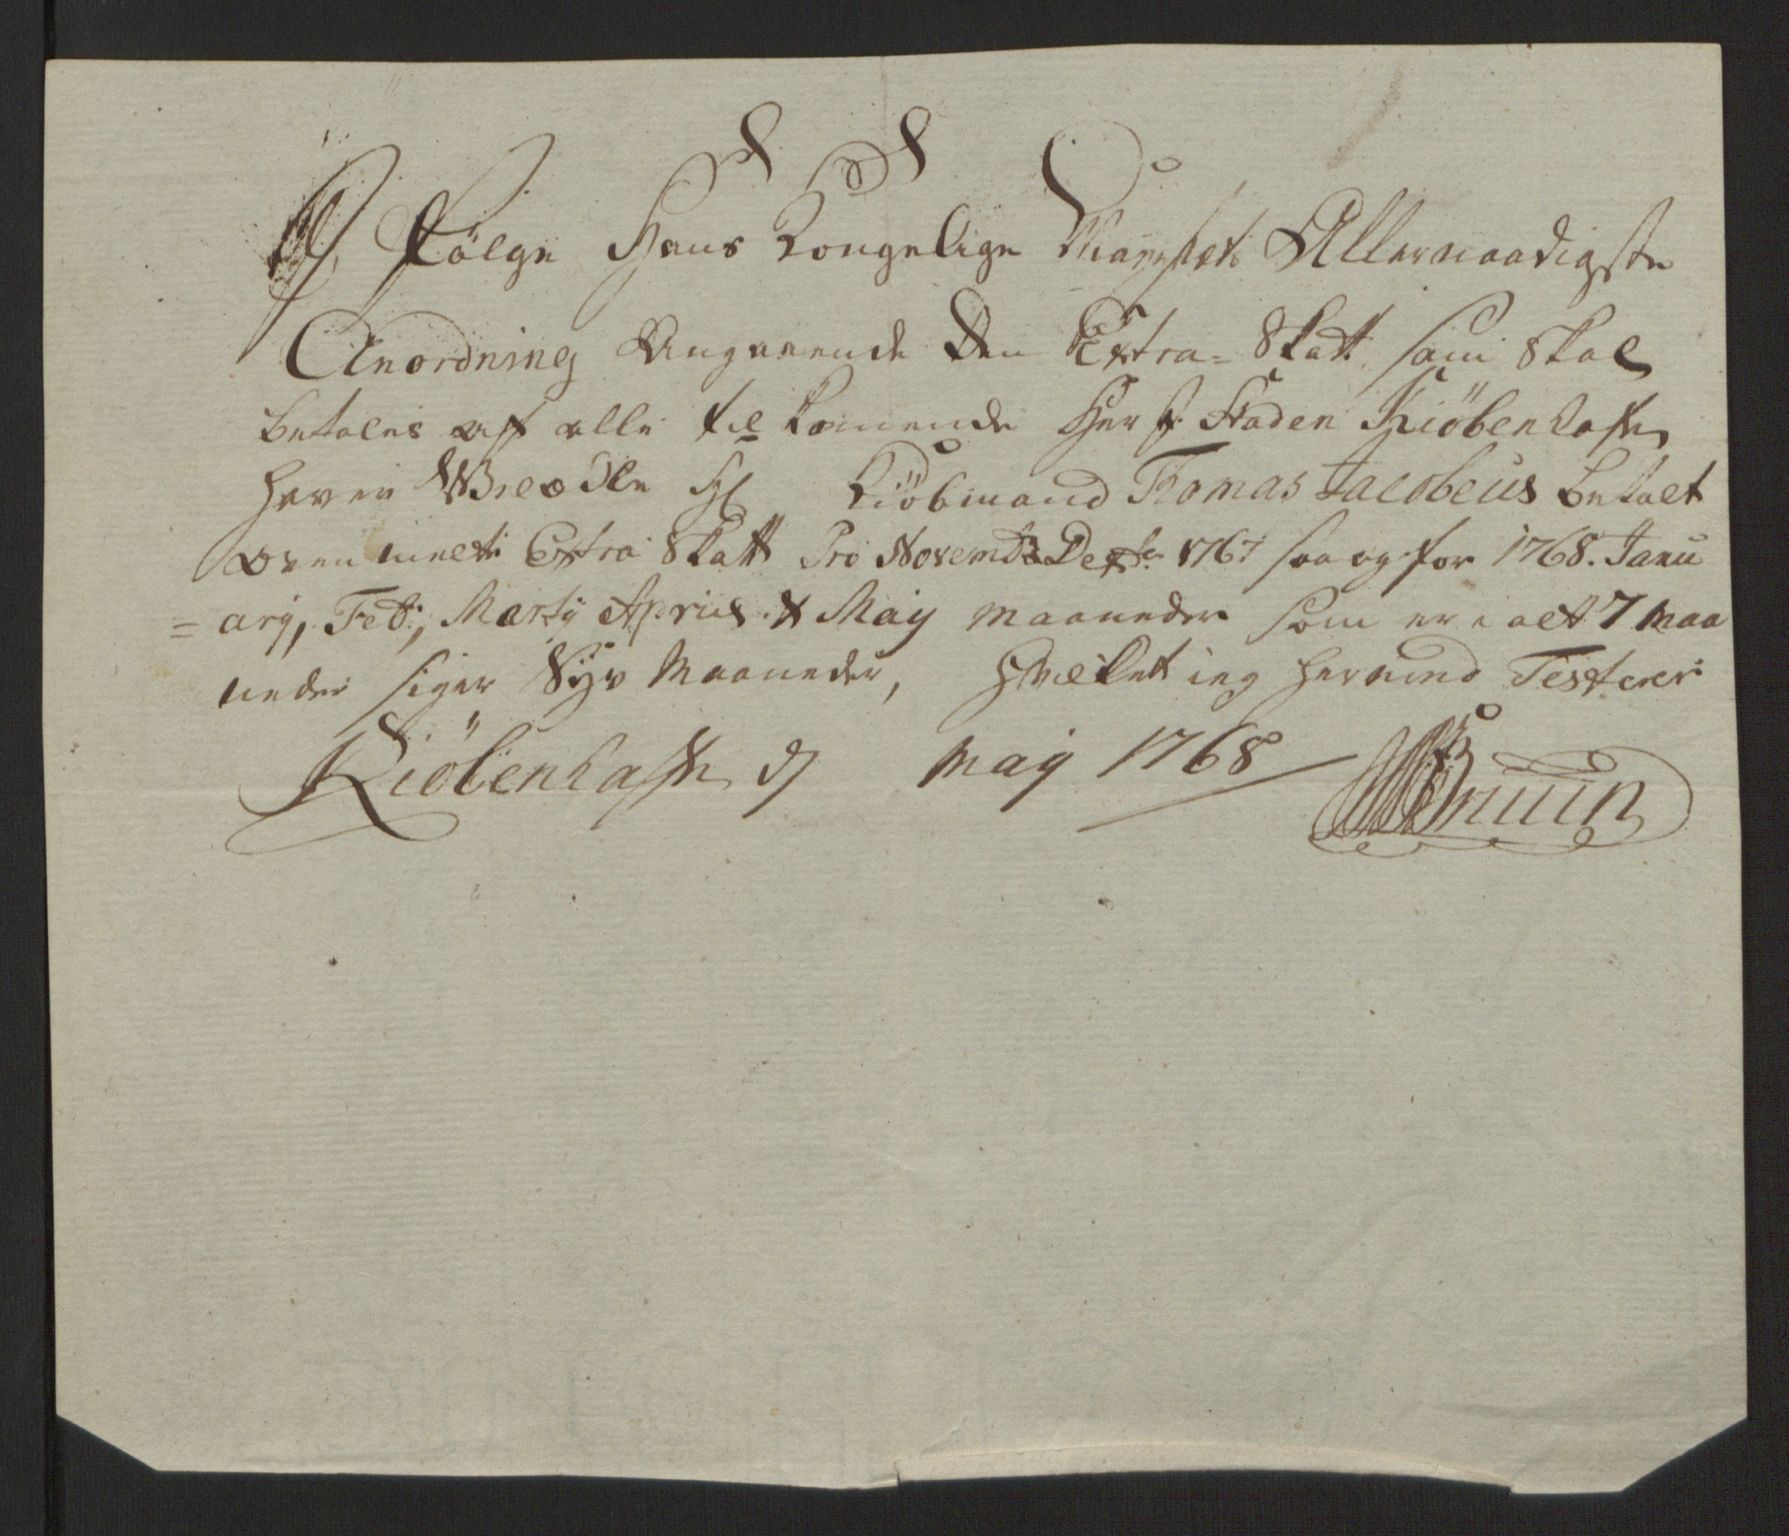 I Fölge Hans Kongelige Mayests Allernaadigste
Anordning Angaaende den Extra-Skatt som Skal
betales af alle tilkomende Her i Staden Kiöbenhafn
haver Kiöbmand Tomas Jacobeus betalt
ovenmelte Extra Skatt Pro Novembr Decbr 1767 saa og for 1768. Janu
= arij, Feb:, Martij Aprius & Maij Maaneder som er i alt 7 Maa
neder siger Syv Maaneder, Hvilket ieg herved Testerer
Kiöbenhafn d Maij 1768 Bruun